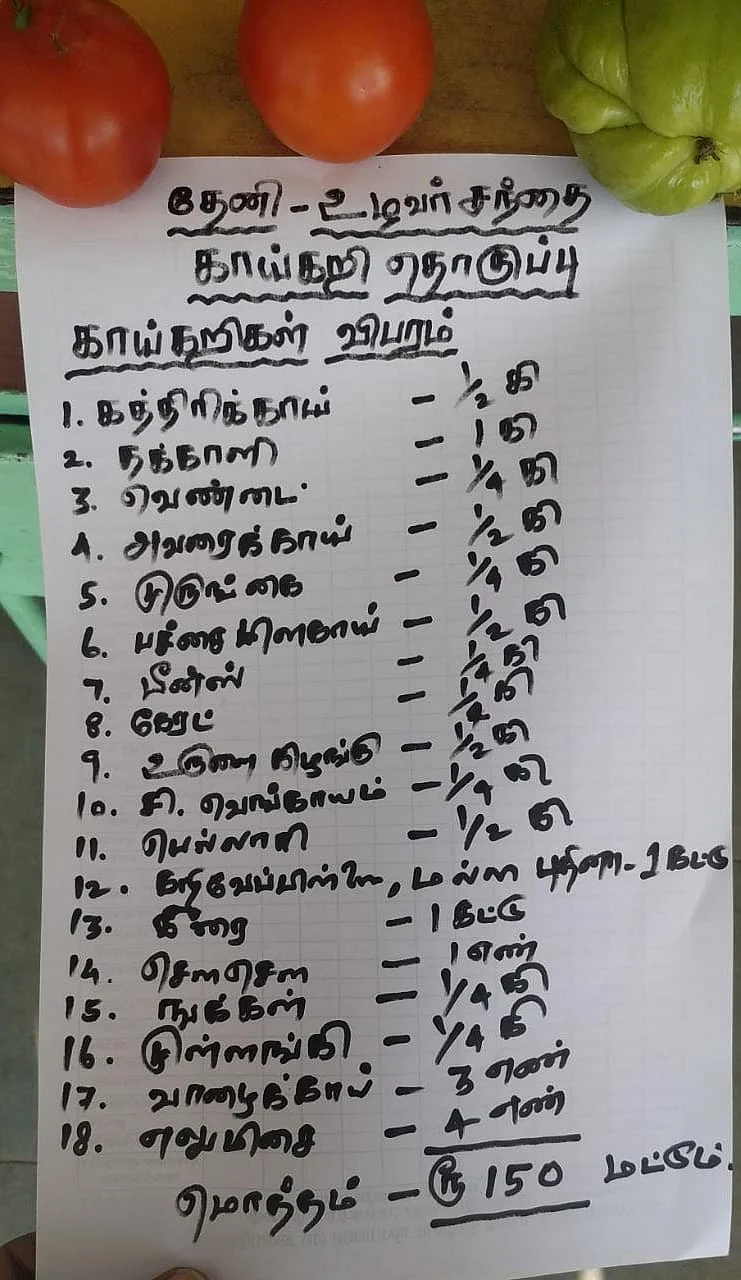 தேனி - உழவர் சந்தை
காய்கறி தொகுப்பு
காய்கறிகள் விபரம்
1. கத்திரிக்காய் - 1/2 கி
2. தக்காளி - 1 கி
3. வெண்டை - 1/4 கி
4. அவரைக்காய் - 1/2 கி
5. முருங்கை - 1/4 கி
6. பச்சை மிளகாய் - 1/2 கி
7. பீன்ஸ் - 1/4 கி
8. கேரட் - 1/4 கி
9. உருளை கிழங்கு - 1/2 கி
10. சி. வெங்காயம் - 1/4 கி
11. பெல்லாரி - 1/2 கி
12. கறிவேப்பிள்ளை, மல்லி புதினா - 1 கட்டு
13. கீரை - 1 கட்டு
14. சௌசௌ - 1 எண்
15. நூக்கள் - 1/4 கி
16. முள்ளங்கி - 1/4 கி
17. வாழைக்காய் - 3 எண்
18. எலுமிசை - 4 எண்
மொத்தம் - ரூ 150 மட்டும்.